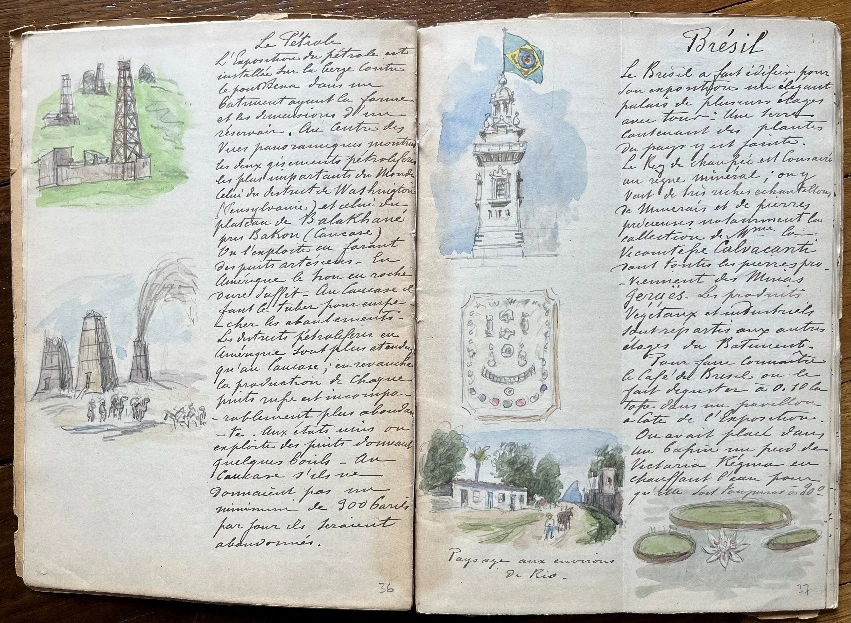 Le Pétrole
L'Exposition du pétrole est
installée sur la berge contre
le pont dans un
batiment ayant la forme
et les dimensions d'un
réservoir. Au Centre des
Vues panoramiques montrent
les deux gisements pétrolifères
les plus importants du Monde
Celui du district de Washington
(Pensylvanie) et celui du
plateau de Balakhané
près Bakou (Caucase)
On l'exploite en forant
des puits artésiens - En
Amérique le trou en roche
dure suffit - Au Caucase il
faut le tuber pour empe-
-cher les éboulements -
Les districts pétrolifères en
Amérique sont plus étendus
qu'au Caucase, en revanche
la production de Chaque
puits russe est incompa-
-rablement plus abondan-
-te. Aux états unis on
exploite des puits donnant
quelques barils - Au
Caucase s'ils ne
donnaient pas un
minimum de 300 barils
par jour ils seraient
abandonnés.
36
Brésil
Le Brésil a fait édifier pour
son exposition un élégant
palais de plusieurs étages
avec tour. Une serre
contenant des plantes
du pays y est jointe.
Le Rez de chaussée est consacré
au règne minéral; on y
voit de très riches échantillons
de Minerais et de pierres
précieuses notamment la
collection de Mme la
Vicomtesse Calvacanti
dont toutes les pierres pro-
-viennent des Minas
Geraës. Les produits
Végétaux et industriels
sont repartis aux autres
étages du Batiment.
Pour faire connaître
le Café du Brésil on le
fait déguster à 0.10 la
tasse dans un pavillon
à Côté de l'Exposition.
On avait placé dans
un bassin un pied de
Victoria Regina en
chauffant l'eau pour
qu'elle soit toujours à 30°
Paysage aux environs
de Rio.
37